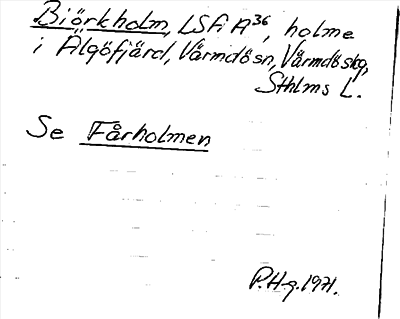 Biörkholm, LSA A³⁶, holme
i Älgöfjärd, Värmdösn, Värmdöskg,
Sthlms L.
Se Fårholmen
P.Hg. 1971.